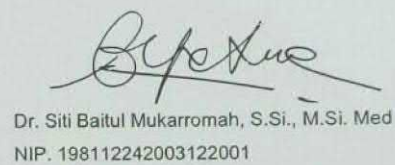 Dr. Siti Baitul Mukarromah, S.Si., M.Si. Med
NIP. 198112242003122001